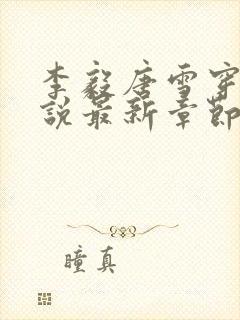 李毅唐雪穿
说最新章节
瞳真